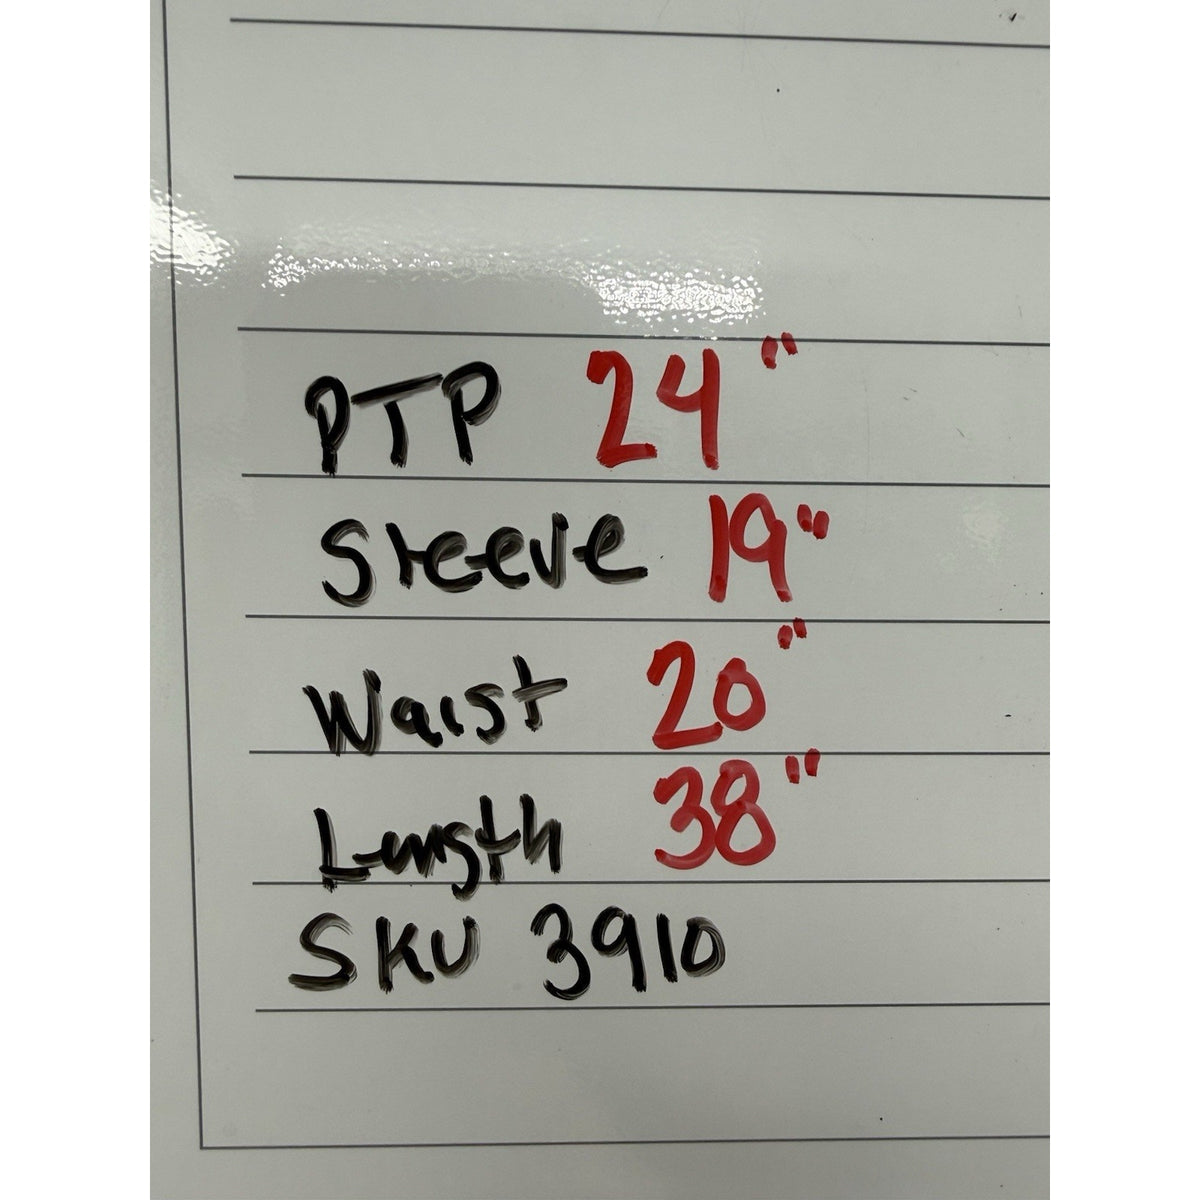 PTP 24"
Sleeve 19"
Waist 20"
Length 38"
SKU 3910